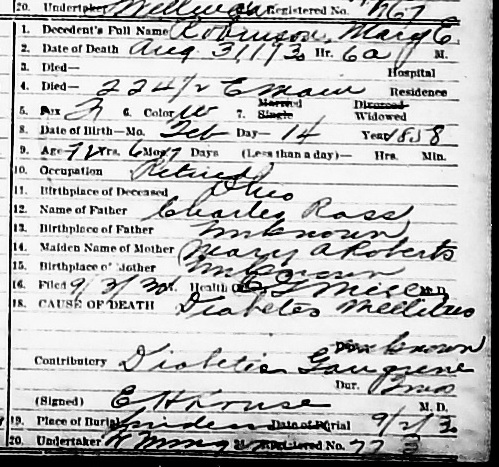 20. Undertaker Registered No. 767
1. Decedent's Full Name Robinson, Mary E.
2. Date of Death Aug 31, 1930 Hr. 6 a M.
3. Died— Hospital
4. Died— 224½ E Main Residence
5. Sex F 6. Color W 7. Married Single Divorced Widowed
8. Date of Birth—Mo. Feb Day— 14 Year 1858
9. Age— 72 Yrs. 6 Mos. 17 Days (Less than a day)— Hrs. Min.
10. Occupation Retired
11. Birthplace of Deceased Ohio
12. Name of Father Charley Ross
13. Birthplace of Father Unknown
14. Maiden Name of Mother Mary A Roberts
15. Birthplace of Mother Unknown
16. Filed 9/3/30 Health Miller M. D.
18. CAUSE OF DEATH Diabetes Mellitus
Dur. Unknown
Contributory Diabetic Gangrene
Dur. 2 mos
(Signed) E H Kruse M. D.
19. Place of Burial Lindenwood Date of Burial 9/2/30
20. Undertaker Registered No. 77